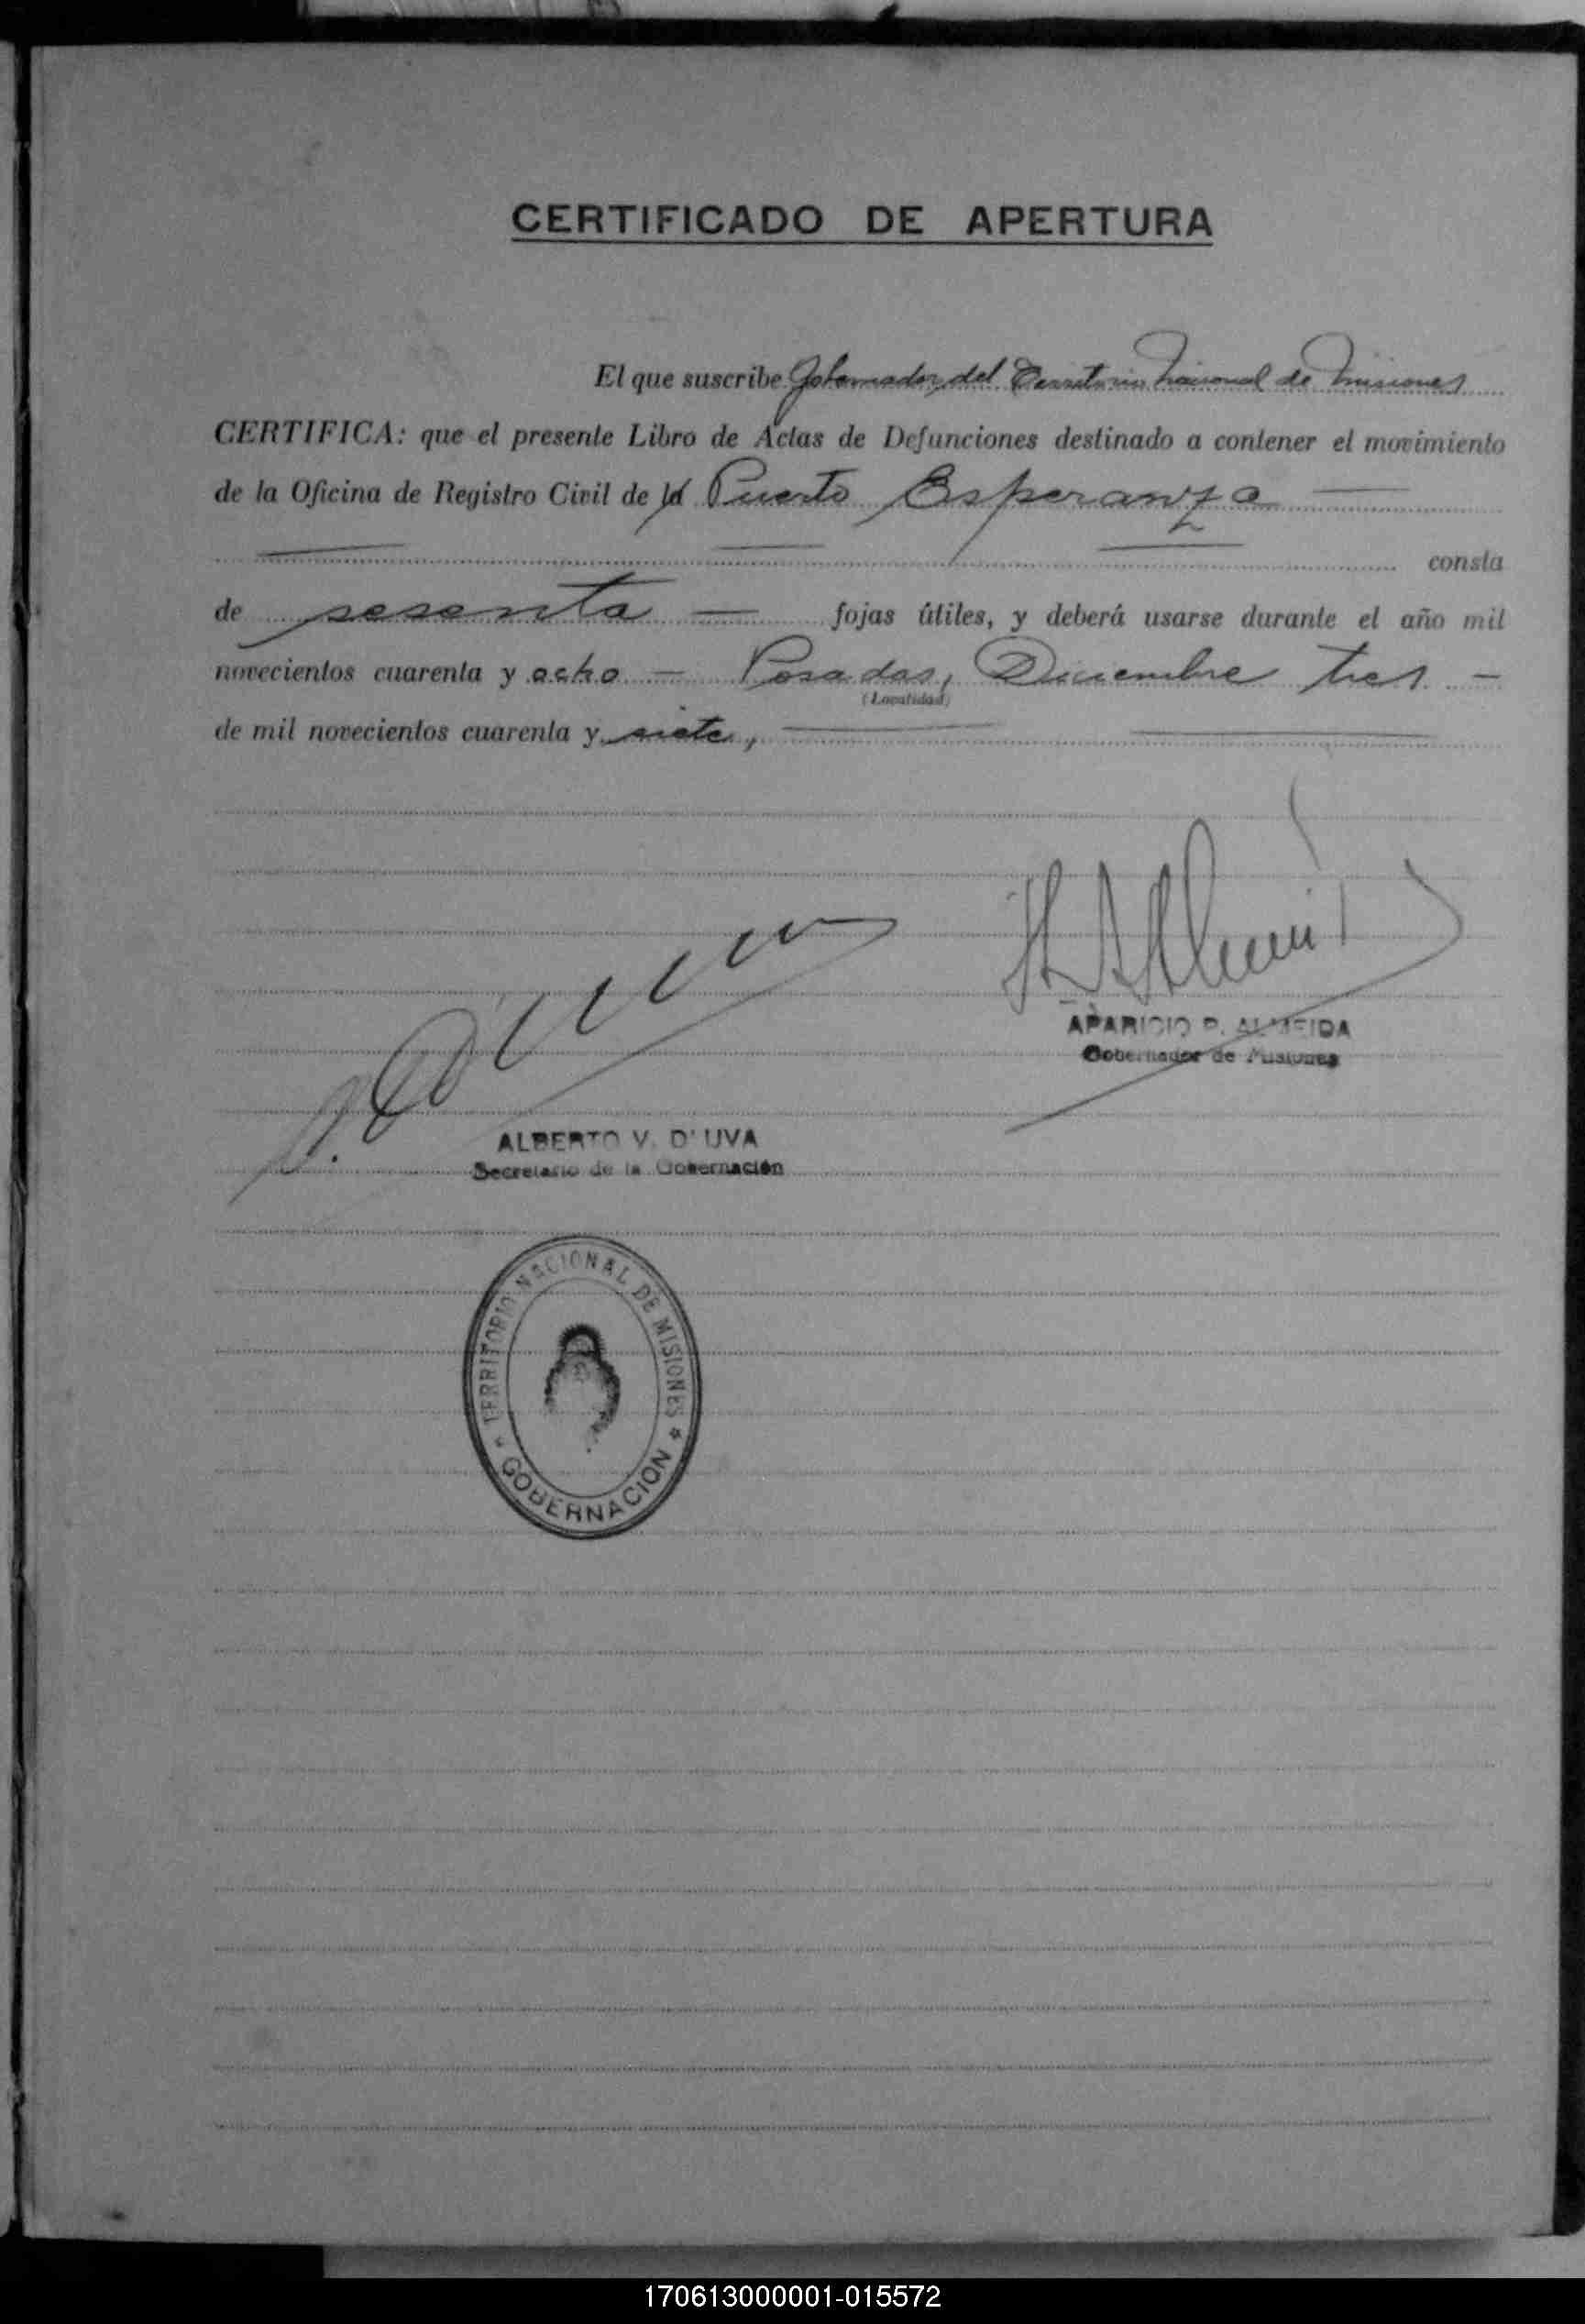 CERTIFICADO DE APERTURA
El que suscribe Gobernador del Territorio Nacional de Misiones
CERTIFICA: que el presente Libro de Actas de Defunciones destinado a contener el movimiento
de la Oficina de Registro Civil de la Puerto Esperanza —
— — — consta
de sesenta — fojas útiles, y deberá usarse durante el año mil
novecientos cuarenta y ocho — Posadas, Diciembre tres —
(Localidad)
de mil novecientos cuarenta y siete, — —
APARICIO P. ALMEIDA
Gobernador de Misiones
ALBERTO V. D'UVA
Secretario de la Gobernación
* TERRITORIO NACIONAL DE MISIONES *
GOBERNACION
170613000001-015572